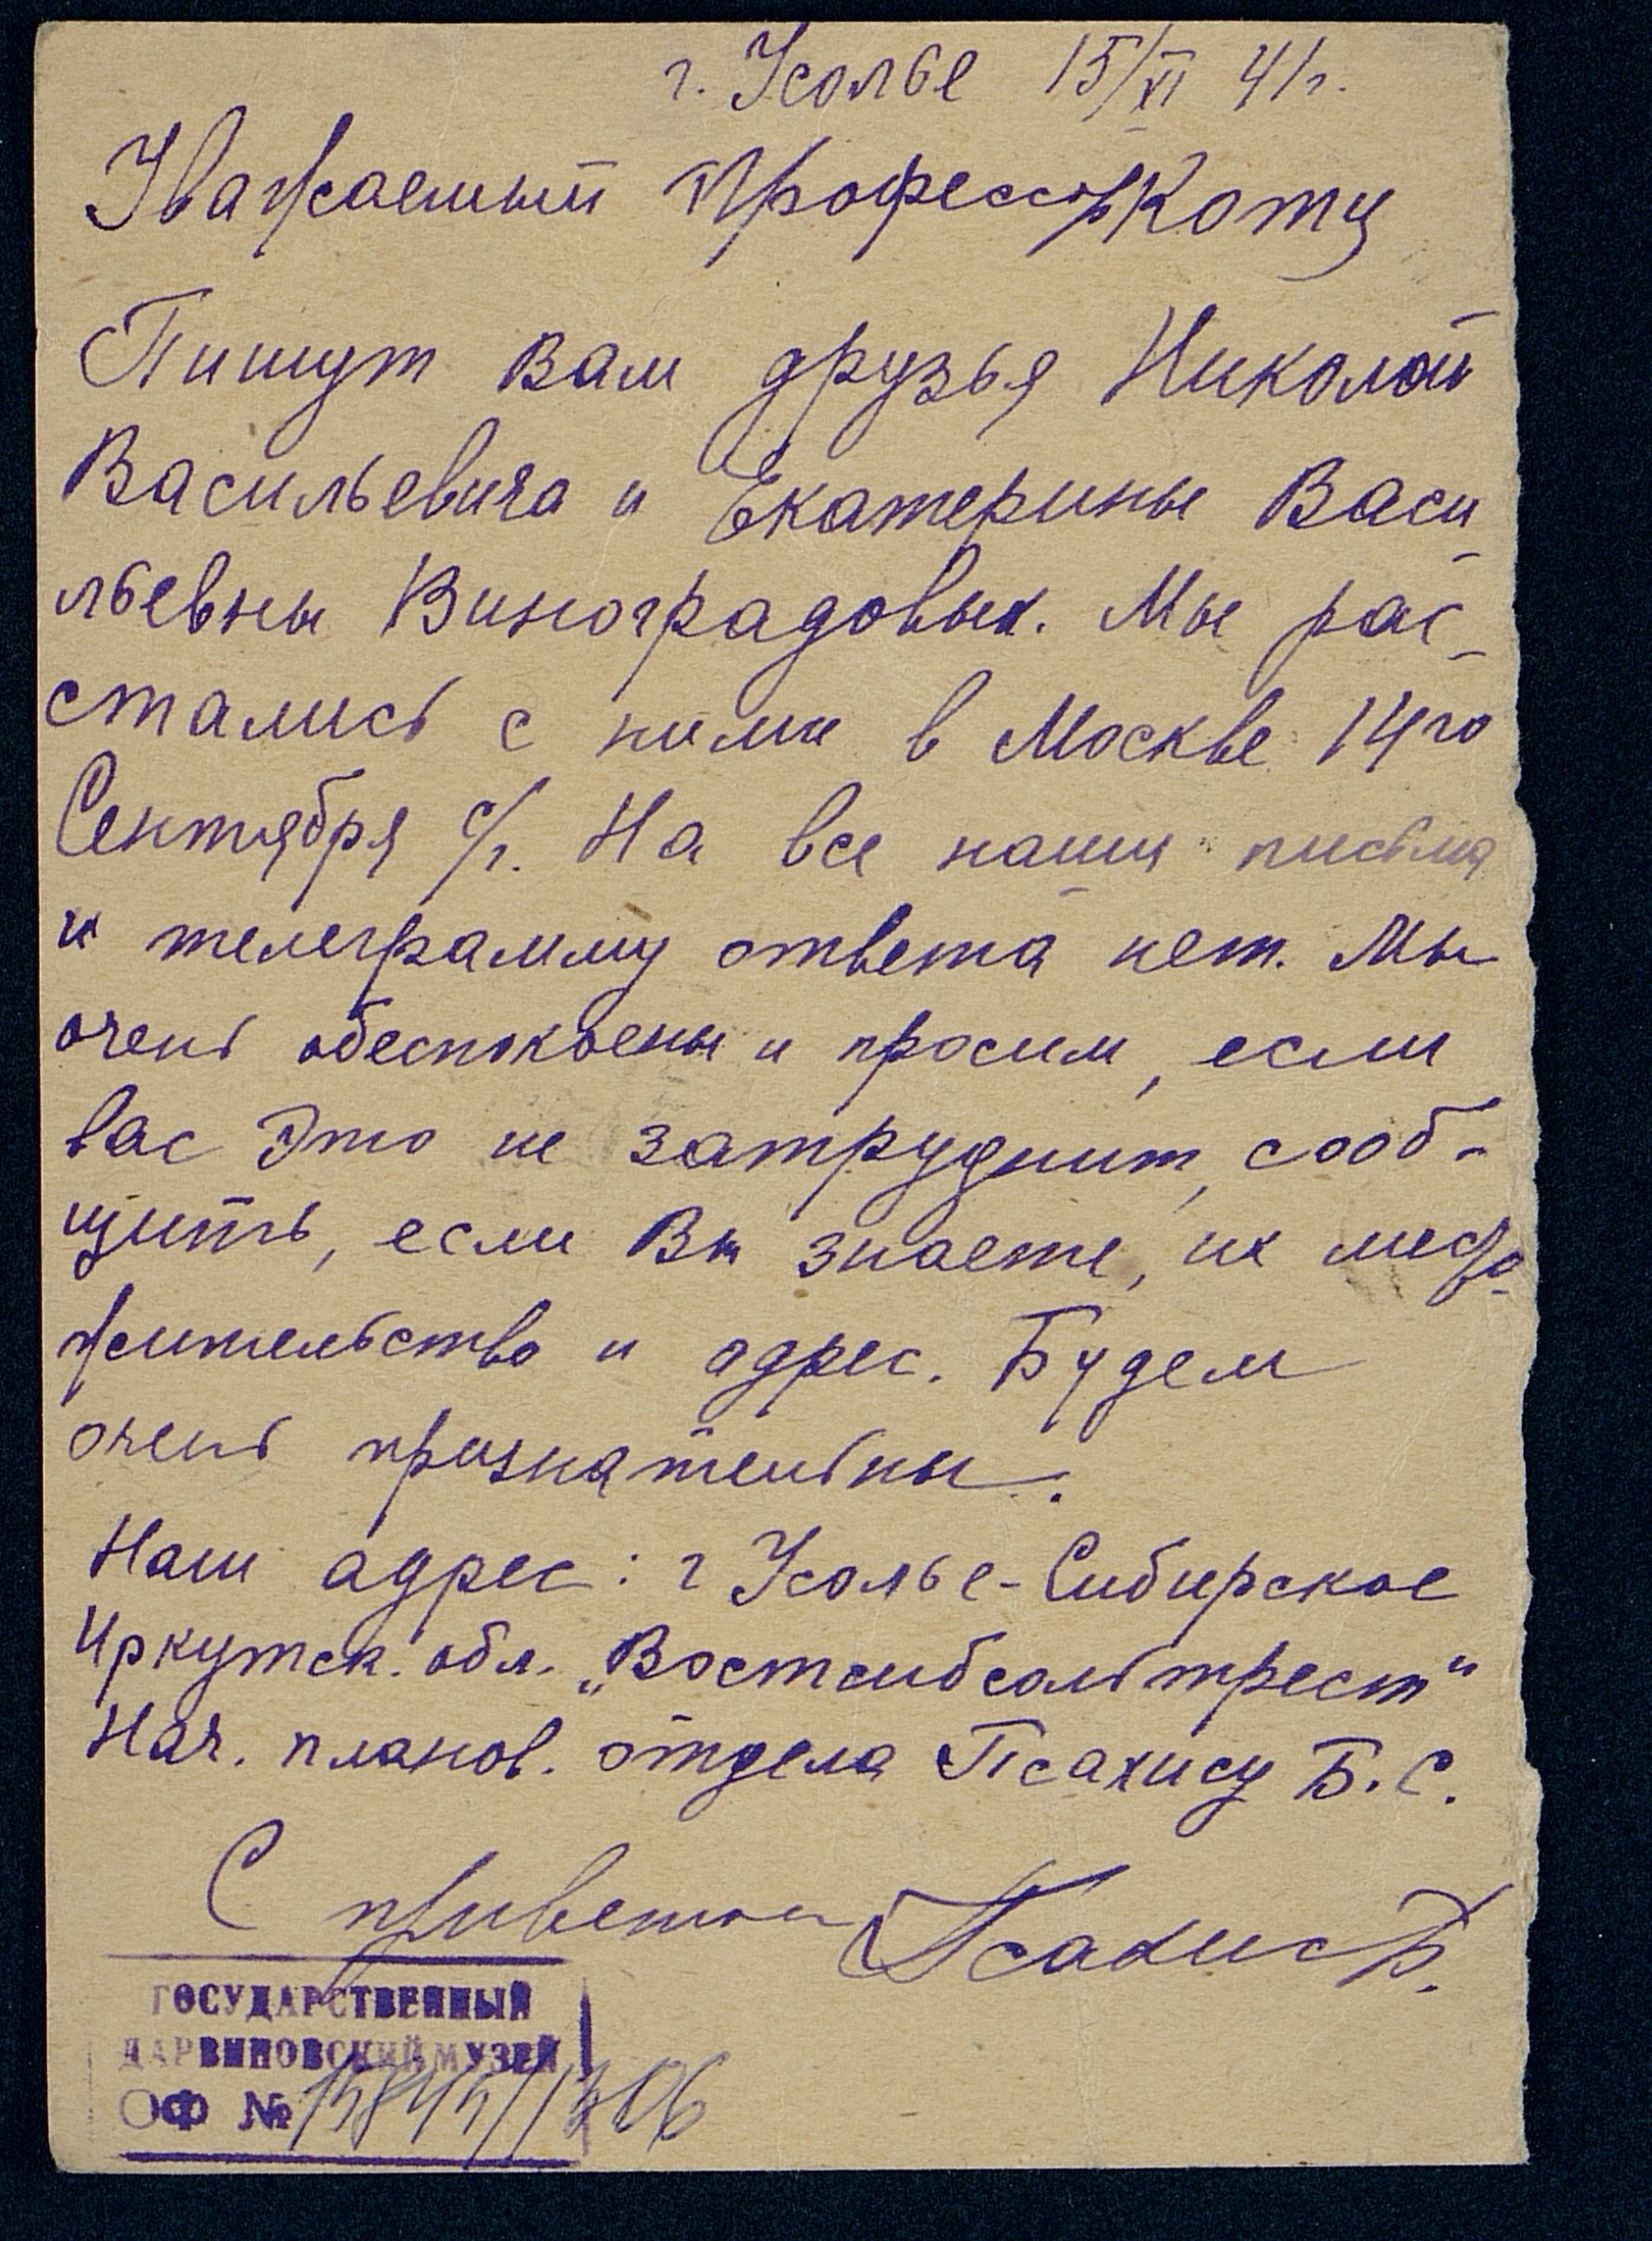 г. Усолье 15/XI 41г.
Уважаемый Профессор Котц
Пишут Вам друзья Николай
Васильевича и Екатерины Васи
льевны Виноградовых. Мы рас-
стались с ними в Москве 14го
Сентября с/г. На все наши письма
и телеграмму ответа нет. Мы
очень обеспокоены и просим, если
вас это не затруднит, сооб-
щить, если Вы знаете, их место-
жительство и адрес. Будем
очень признательны.
Наш адрес: г Усолье-Сибирское
Иркутск. обл. „Востсибсольтрест"
Нач. планов. отдела Псахису Б.С.
С приветом Псахис Б.
ГОСУДАРСТВЕННЫЙ
ДАРВИНОВСКИЙ МУЗЕЙ
ОФ №